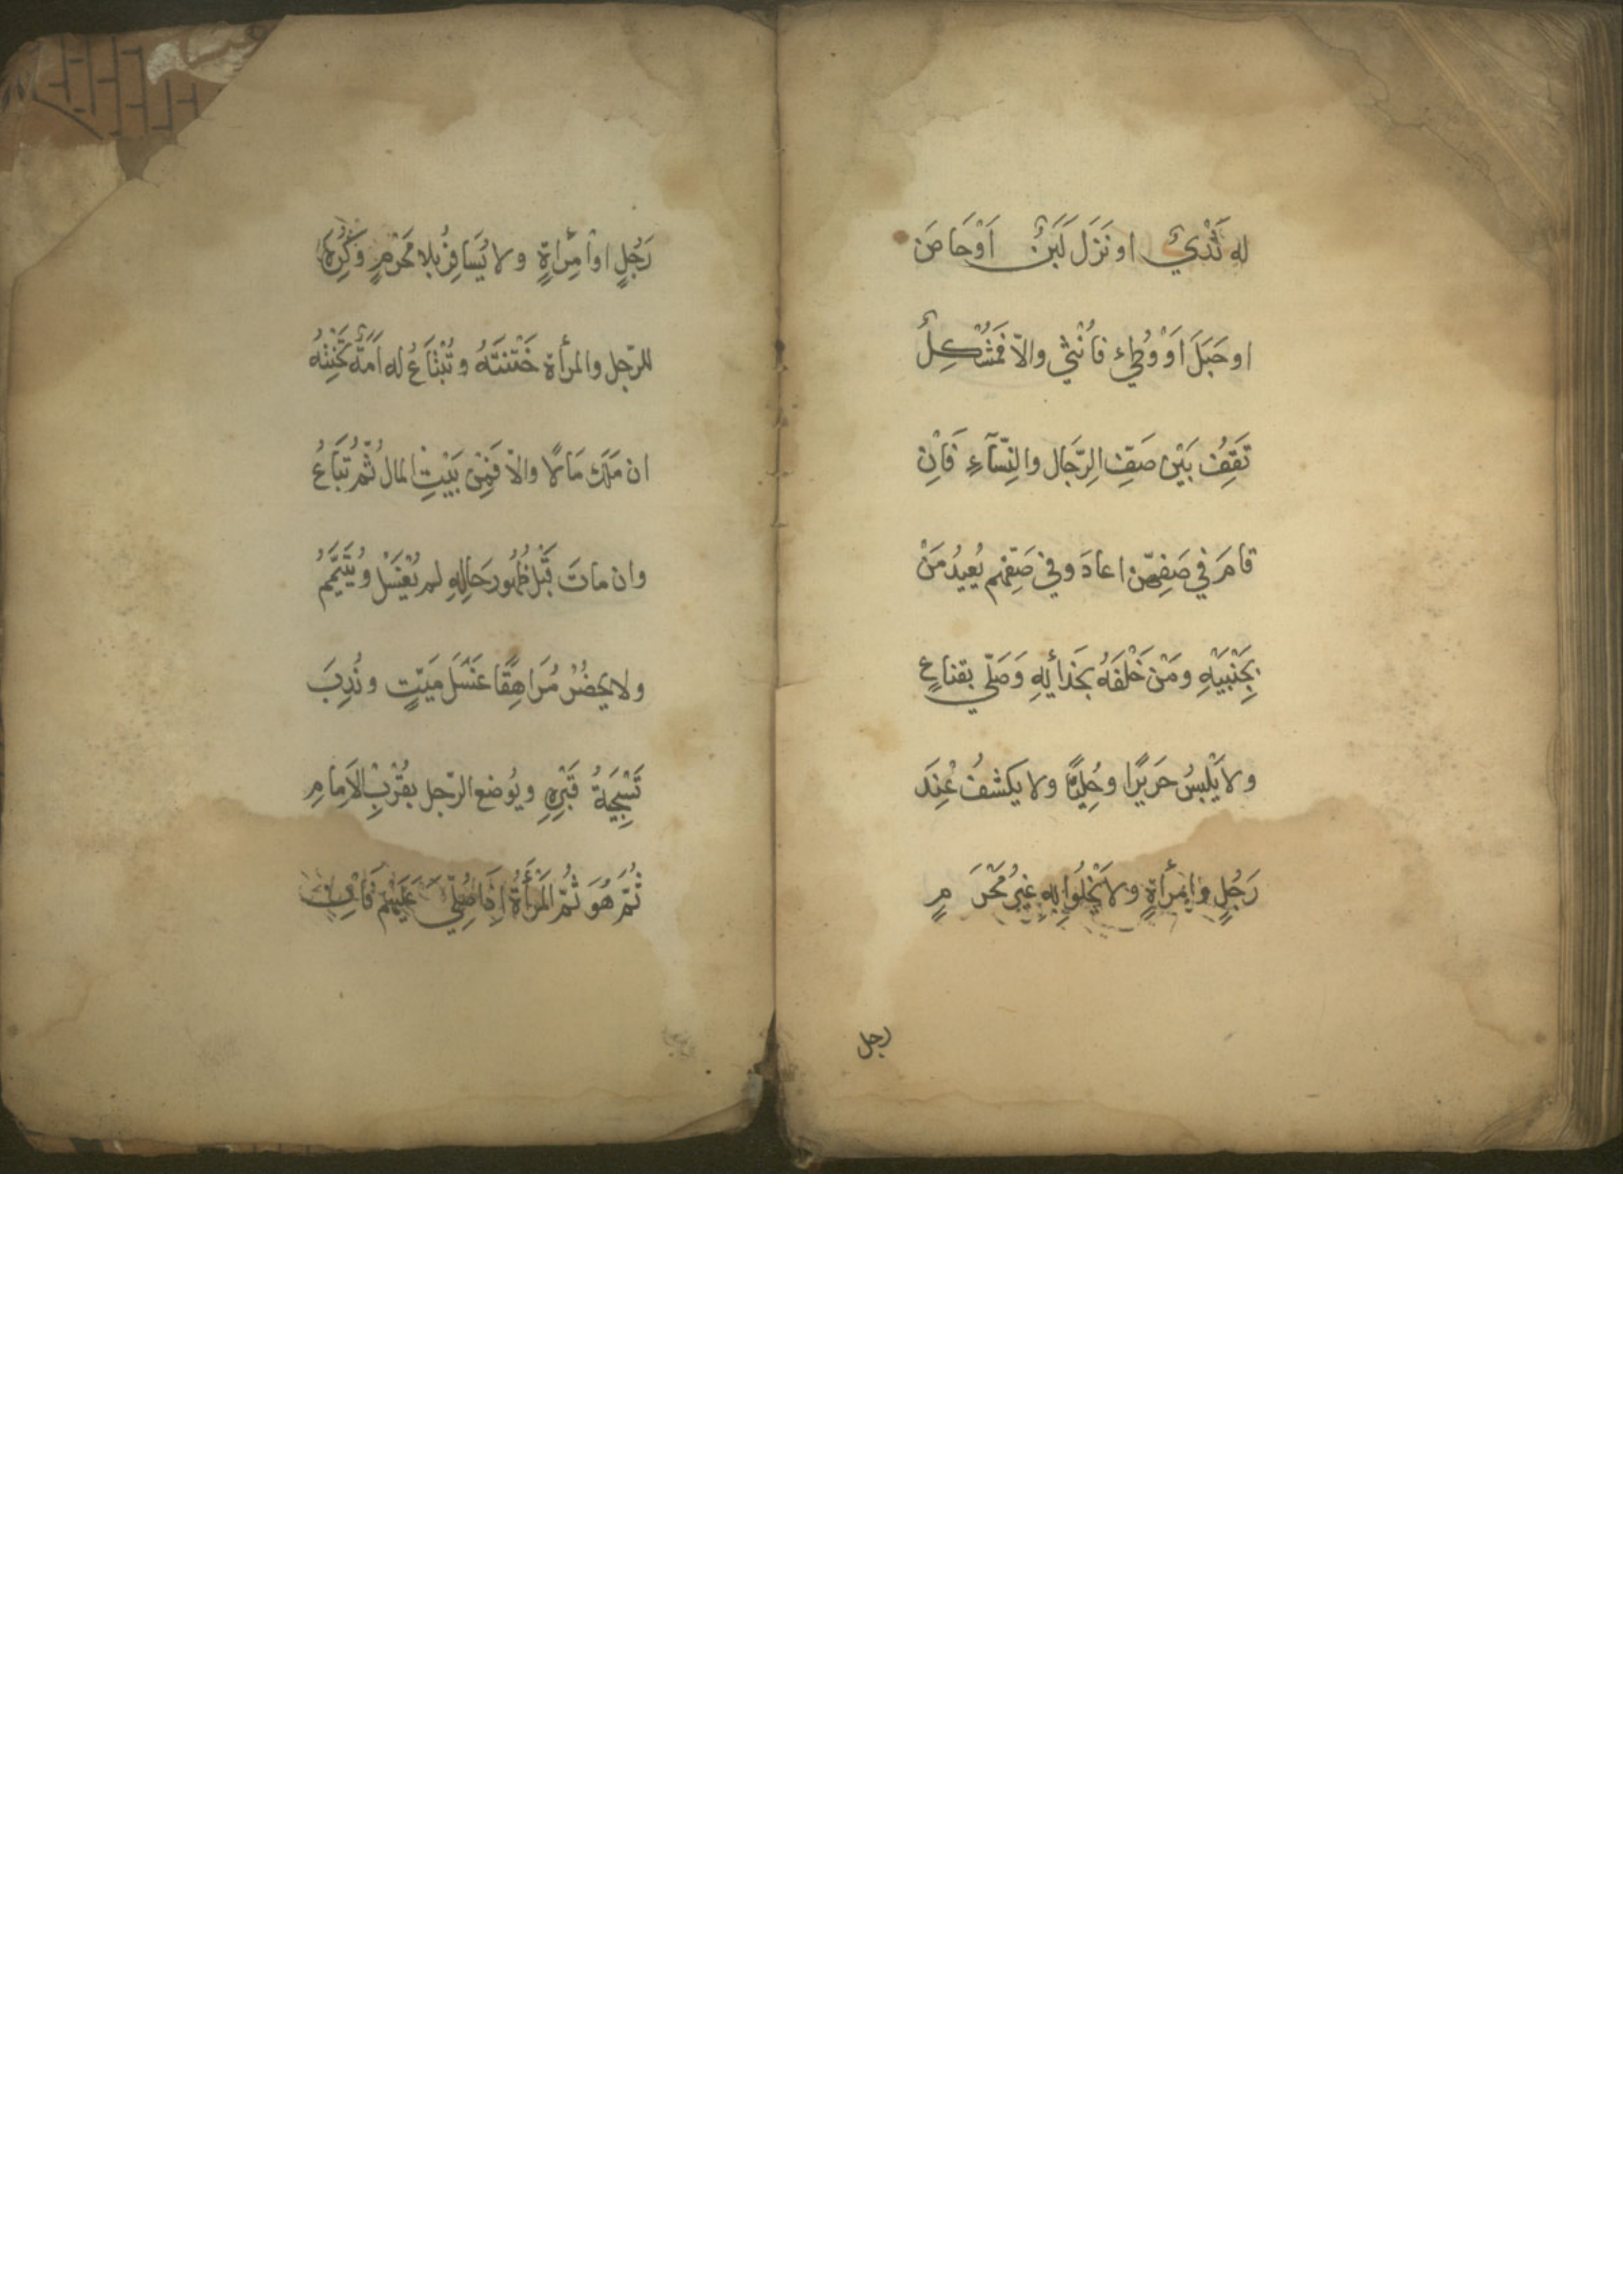 له ثَدْيٌ او نَزَلَ لَبَنٌ اَوْ حَاضَ
او حَبَلَ اَوْ وُطِئ فَاُنْثى والاّ فَمُشْكِلٌ
تَقِفُ بَيْنَ صَفِّ الرِّجَال والنِّسَآءِ فَاِنْ
قامَ في صَفِّهِنّ اعادَ وفي صَفِّهم يُعيدُ مَنْ
بِجَنْبَيْهِ ومَنْ خَلْفَهُ بحَذائِهِ وَصَلّي بقناعٍ
ولا يَلْبسُ حَريرًا وحُلِيًّا ولا يَكشفُ عِنْدَ
رَجُلٍ وامْرأةٍ ولا يَخْلُوا بِهِ غيرُ مَحْرَمٍ
رجل
رَجُلٍ اوْ امْرِأةٍ ولا يُسَافِرُ بلا مَحْرمٍ وَكُرِهَ
للرّجل والمرأة خَتْنتَهُ وتُبْتَاعُ له اَمَةٌ تَخْتِنُهُ
ان مَلَكَ مَالاً والاّ فَمِنْ بَيْتِ المال ثُمّ تُبَاعُ
وان ماتَ قَبْل ظُهُور حَالِهِ لم يُغْسَل ويُتَيَمَّمُ
ولا يحضُرُ مُرَاهِقًا غَسْلَ مَيّتٍ ونُدِبَ
تَسْجِيَةُ قَبْرِهِ ويُوضع الرّجل بقُرْبِ الاَمامِ
ثُمّ هُوَ ثُمّ المَرْأةُ اِذَا صُلِّيَ عَلَيْهِم فَاْن